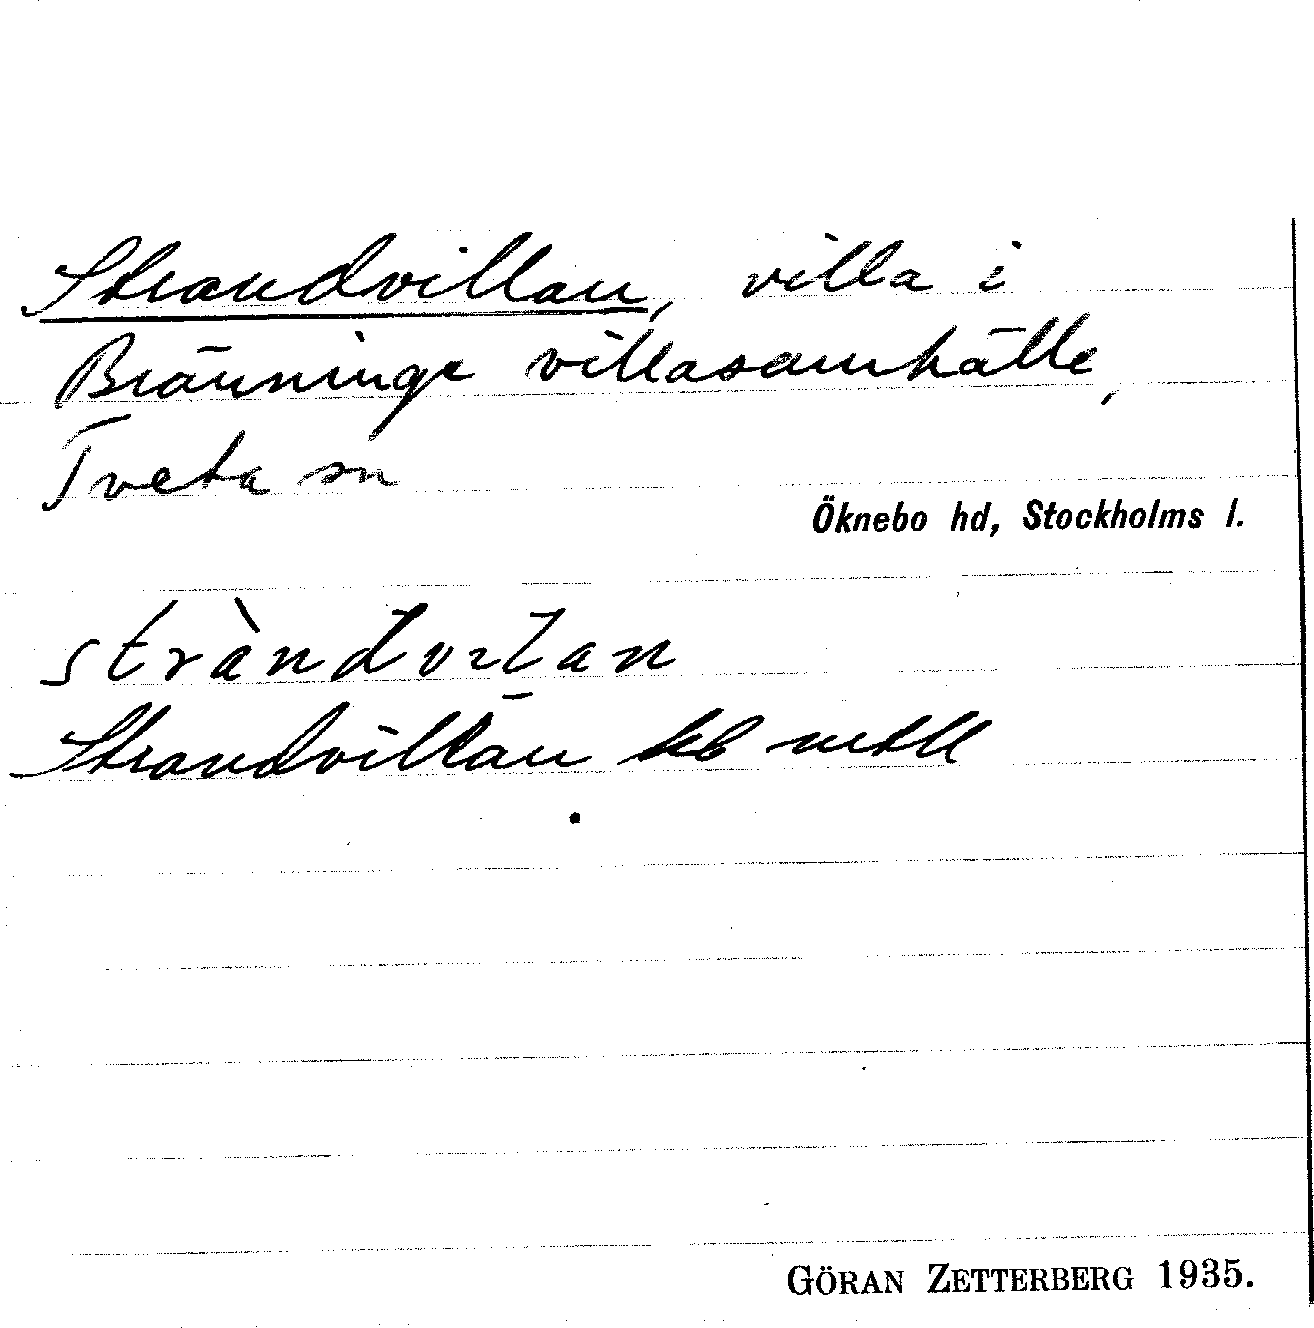 Strandvillan, villa i
Bränninge villasamhälle,
Tveta sn
Öknebo hd, Stockholms l.
stràndvılan
Strandvillan kb mtll
GÖRAN ZETTERBERG 1935.